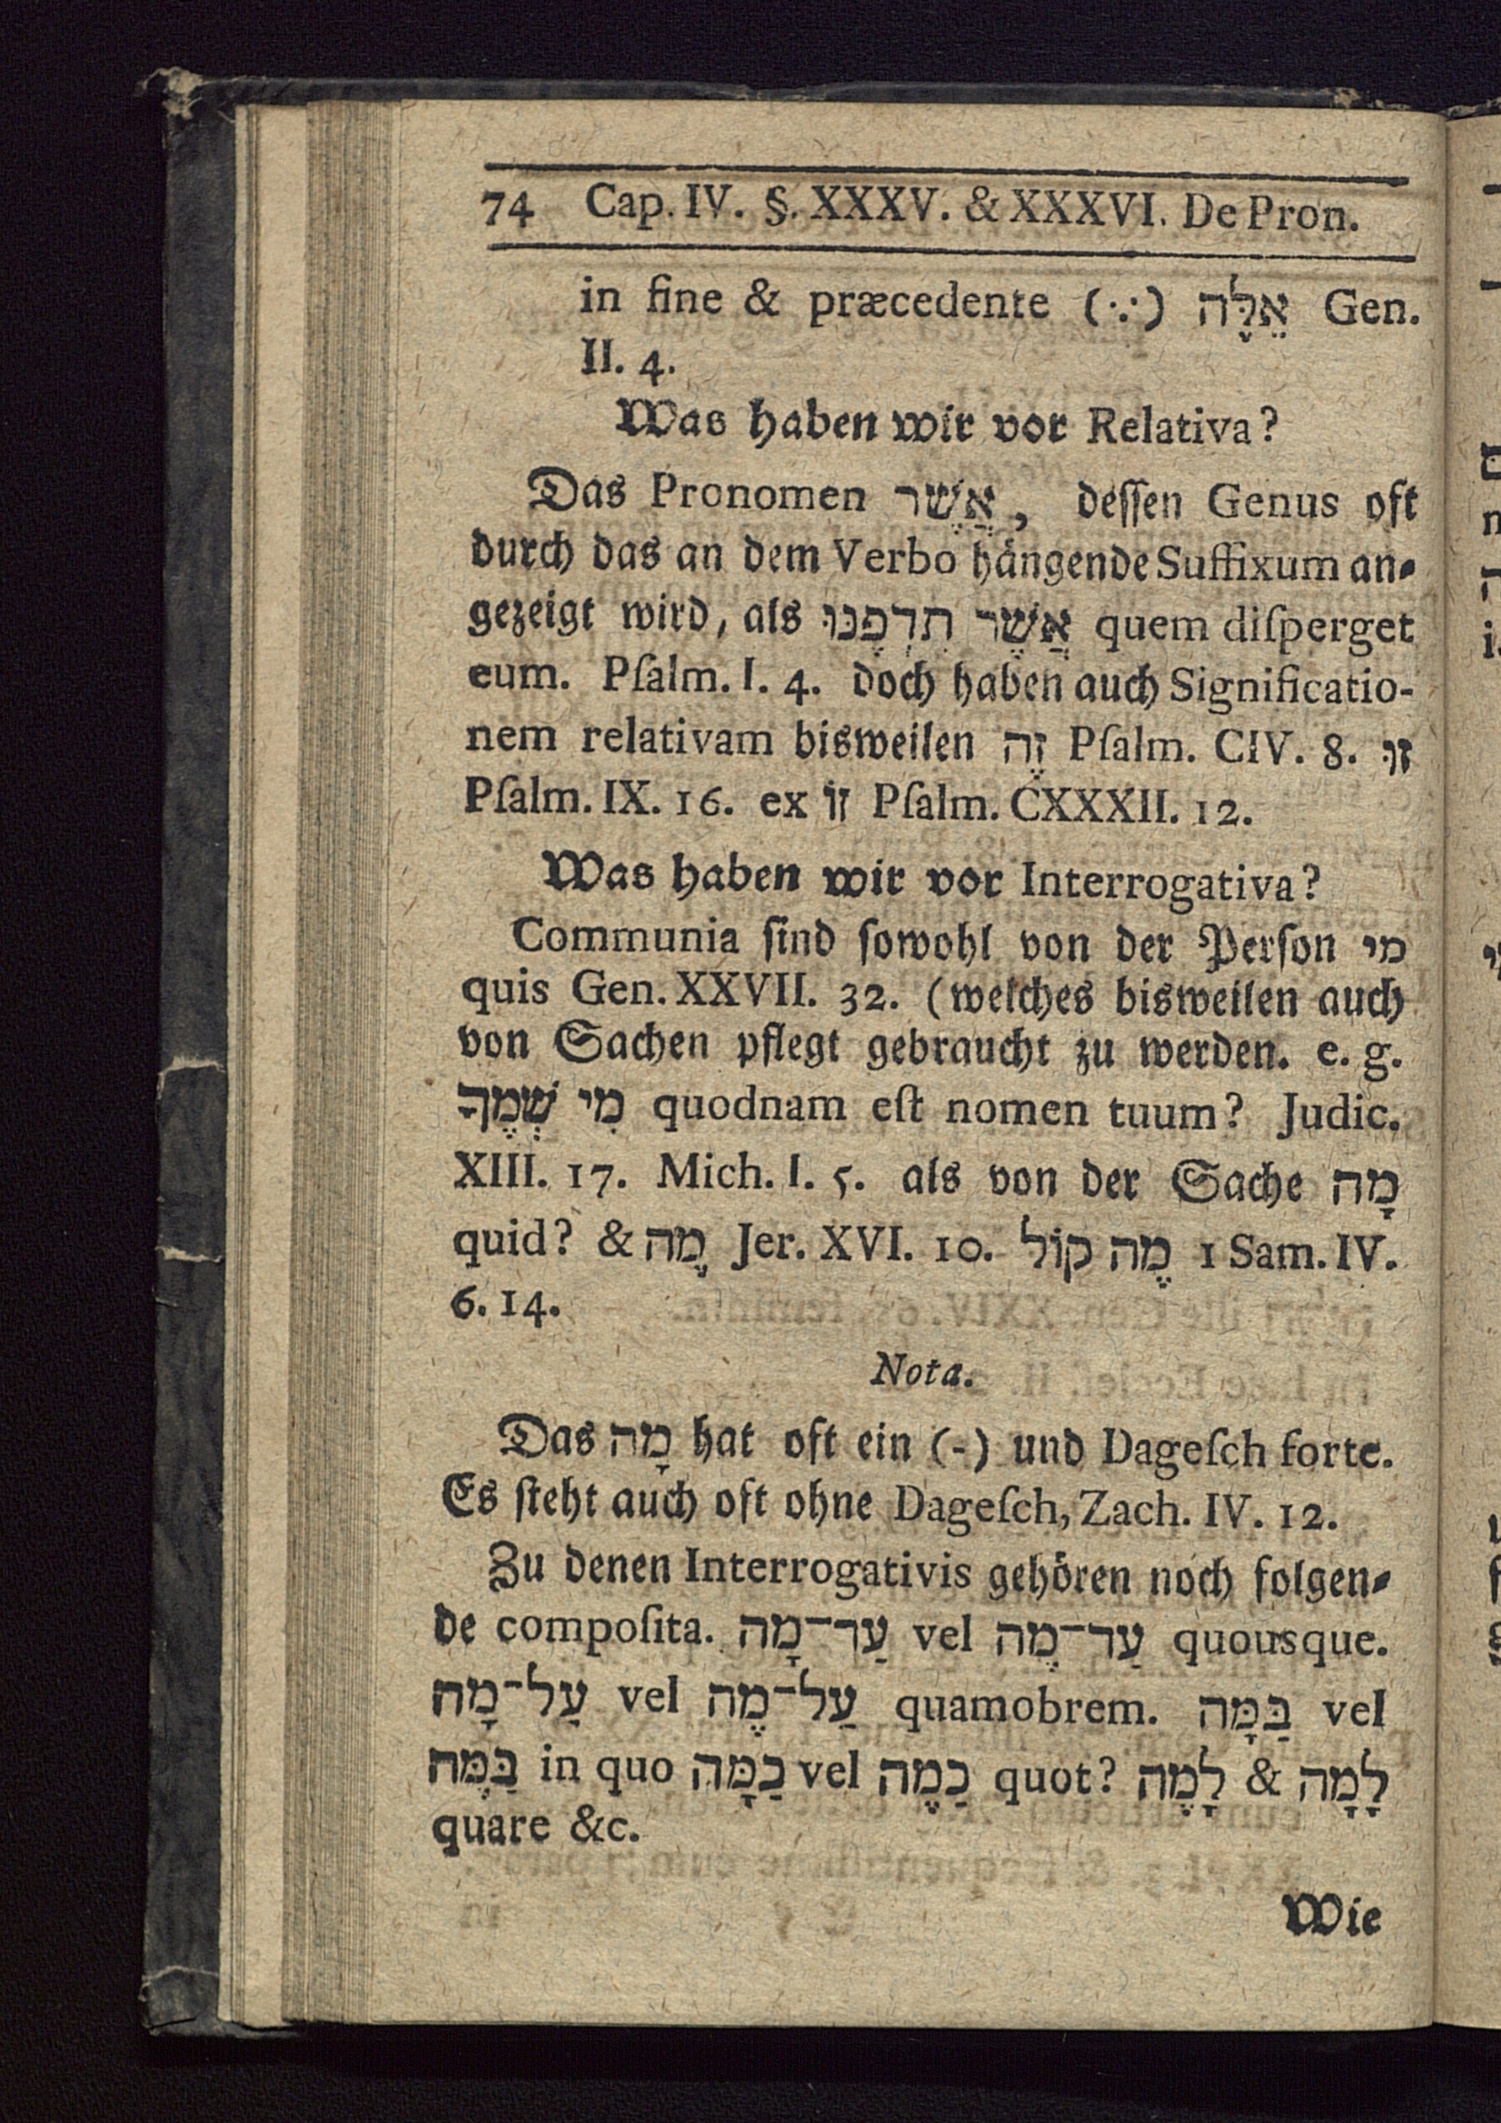 74 Cap. IV. §. XXXV. & XXXVI. De Pron.
in fine & præcedente (ֶ) אֵלֶּה Gen.
II. 4.
Was haben wir vor Relativa?
Das Pronomen אֲשֶׁר, deſſen Genus oft
durch das an dem Verbo hängende Suffixum an-
gezeigt wird, als אֲשֶׁר תִדְפֶנּוּ quem diſperget
eum. Pſalm. I. 4. doch haben auch Significatio-
nem relativam bisweilen זֶה Pſalm. CIV. 8. זוּ
Pſalm. IX. 16. ex זוֹ Pſalm. CXXXII. 12.
Was haben wir vor Interrogativa?
Communia ſind ſowohl von der Perſon מי
quis Gen. XXVII. 32. (welches bisweilen auch
von Sachen pflegt gebraucht zu werden. e. g.
מִי שְׁמֶךָ quodnam eſt nomen tuum? Judic.
XIII. 17. Mich. I. 5. als von der Sache מָה
quid? & מֶה Jer. XVI. 10. מֶה קוֹל 1 Sam. IV.
6. 14.
Nota.
Das מָה hat oft ein (-) und Dageſch forte.
Es ſteht auch oft ohne Dageſch, Zach. IV. 12.
Zu denen Interrogativis gehören noch folgen-
de compoſita. עַד־מָה vel עַד־מֶה quousque.
עַל־מָח vel עַל־מֶה quamobrem. בַּמָּה vel
בַּמֶּח in quo כַּמָּה vel כַמֶּה quot? לָמֶה & לָמָה
quare &c.
Wie